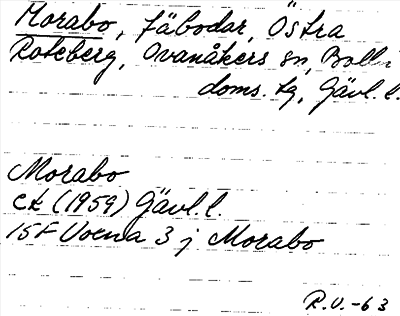 Morabo, fäbodar, Östra
Roteberg, Ovanåkers sn, Boll-
doms. tg, Gävl. l.
Morabo
ek (1959) Gävl. l.
15F Voxna 3 j Morabo
R.V. -63